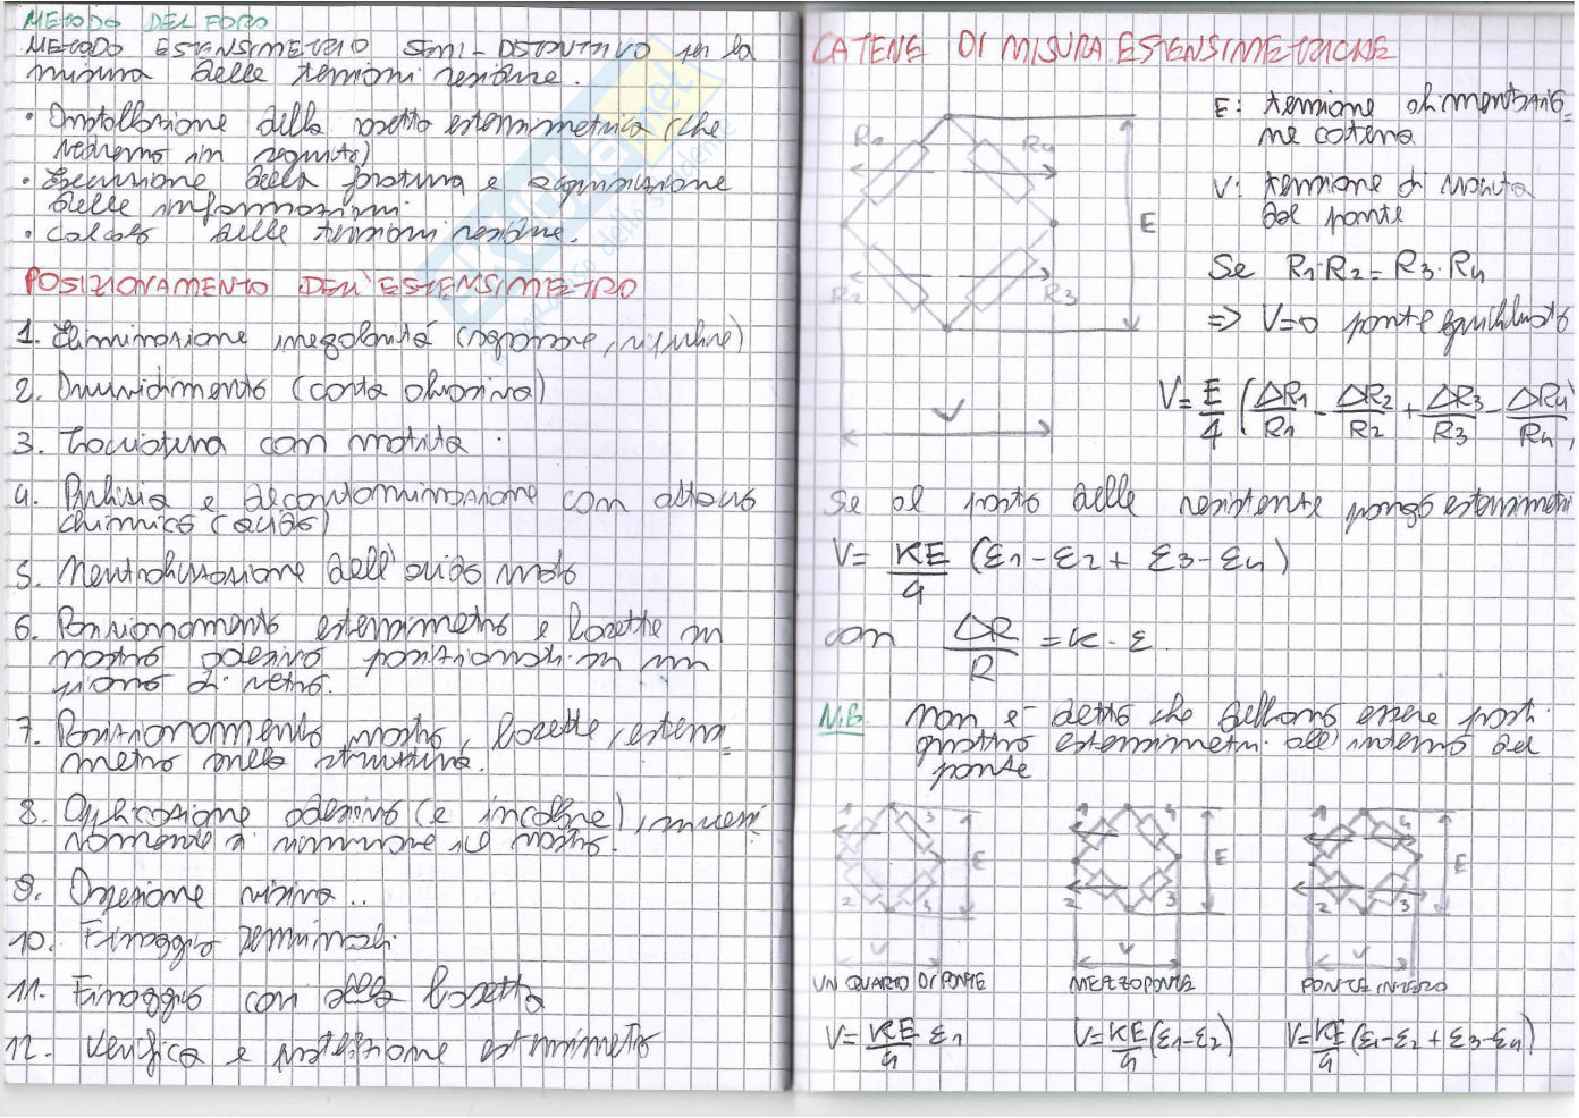 METODO DEL FORO
METODO ESTENSIMETRICO SEMI-DISTRUTTIVO per la
misura delle tensioni residue.
• Installazione della rosetta estensimetrica (che
vedremo in seguito)
• Esecuzione della foratura e acquisizione
delle informazioni.
• Calcolo delle tensioni residue.
POSIZIONAMENTO DELL'ESTENSIMETRO
1. Eliminazione irregolarità (sgrassare, ripulire)
2. Inumidimento (carta abrasiva)
3. Tracciatura con matita.
4. Pulizia e decontaminazione con attacco
chimico (acido)
5. Neutralizzazione dell'acido
6. Posizionamento estensimetro e basette in
nastro adesivo posizionati in un
piano di vetro.
7. Posizionamento nastro, basette, estensi=
metro sulla struttura.
8. Applicazione adesivo (e incollare),
rimozione il nastro.
9. Ispezione visiva..
10. Fissaggio terminali.
11. Fissaggio con basetta
12. Verifica e protezione estensimetro
CATENE DI MISURA ESTENSIMETRICHE
E: tensione alimentazio=
ne catena
V: tensione di uscita
dal ponte
R1 R4
E
R2 R3
V
Se R1·R2 = R3·R4
=> V=0 ponte equilibrato
V= E/4 (ΔR1/R1 - ΔR2/R2 + ΔR3/R3 - ΔR4/R4)
Se al posto delle resistenze pongo estensimetri
V= KE/4 (ε1-ε2+ ε3-ε4)
con ΔR/R = K·ε.
N.B. non è detto che debbano essere posti
quattro estensimetri all'interno del
ponte
1 3 E 2 3 V
1 4 E 2 3 V
1 4 E 2 3 V
UN QUARTO DI PONTE
MEZZO PONTE
PONTE INTERO
V= KE/4 ε1
V= KE/4 (ε1-ε2)
V= KE/4 (ε1-ε2+ε3-ε4)